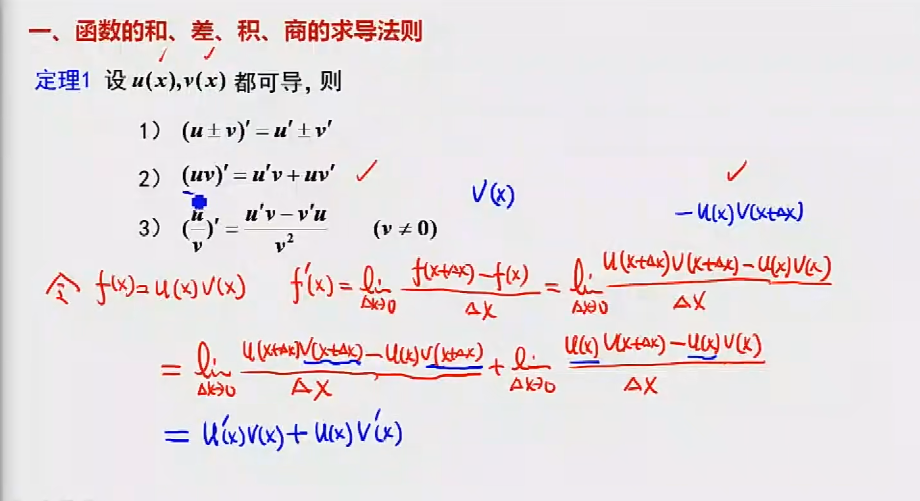 一、函数的和、差、积、商的求导法则
定理1 设 u(x),v(x) 都可导, 则
1) (u ± v)' = u' ± v'
2) (uv)' = u'v + uv' ✓
V(x)
✓
-u(x)V(x+Δx)
3) (u/v)' = (u'v - v'u)/v² (v ≠ 0)
令 f(x)=u(x)V(x) f'(x) = lim Δx→0 (f(x+Δx)-f(x))/Δx = lim Δx→0 (u(x+Δx)V(x+Δx)-u(x)V(x))/Δx
= lim Δx→0 (u(x+Δx)V(x+Δx)-u(x)V(x+Δx))/Δx + lim Δx→0 (u(x)V(x+Δx)-u(x)V(x))/Δx
= u'(x)V(x)+u(x)V'(x)